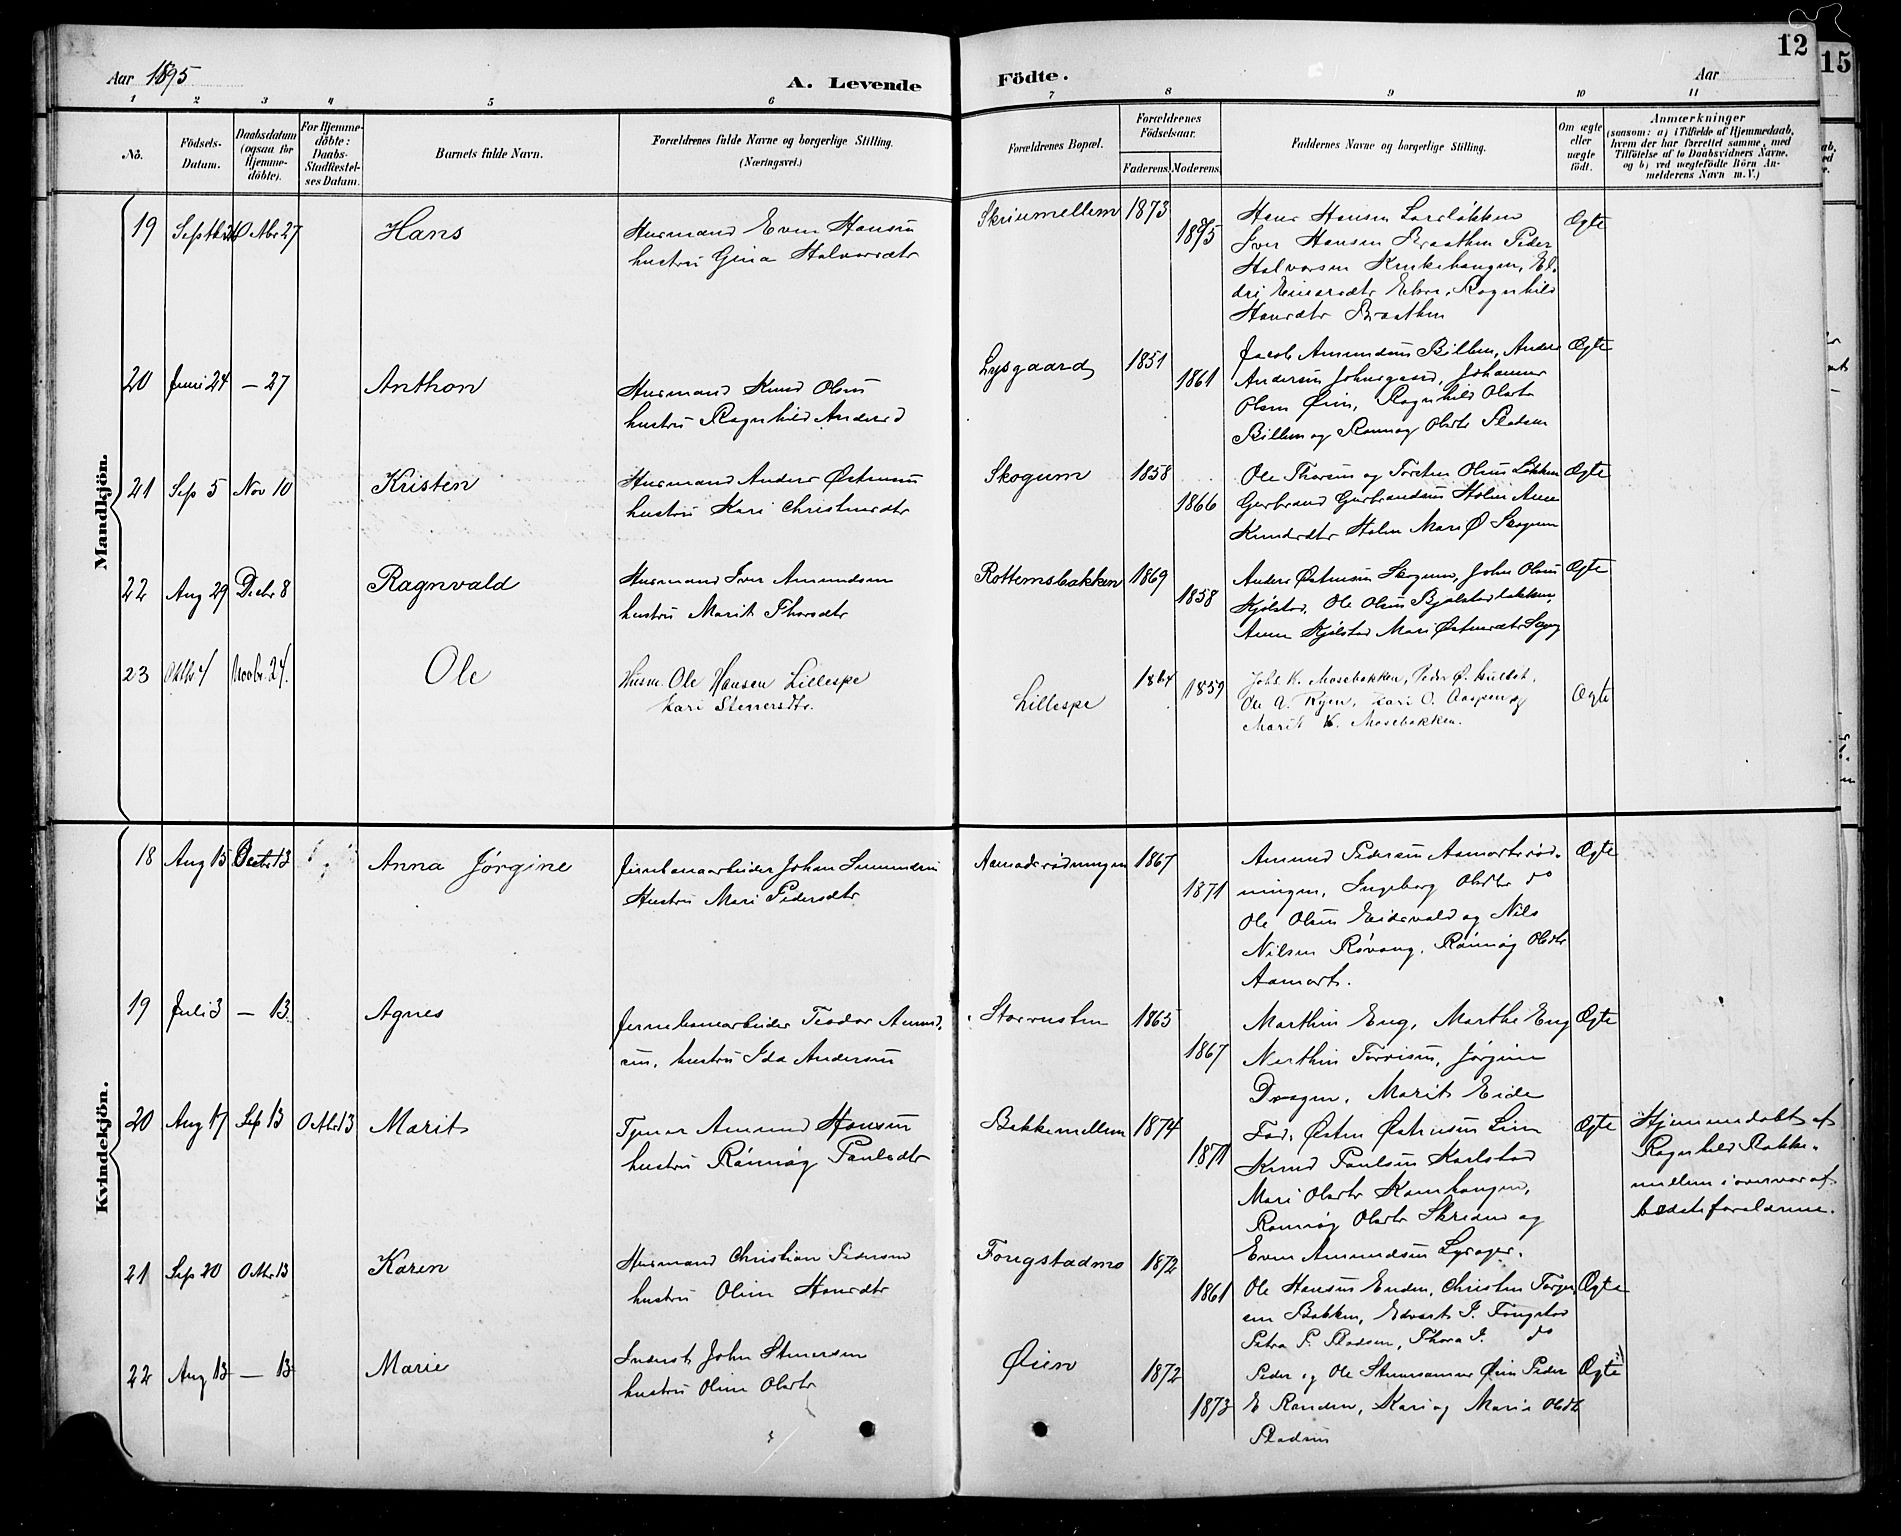 12
15
Aar 1895
A. Levende Födte.
Aar
1 2 3 4 5 6 7 8 9 10 11
No.
Födsels-Datum.
Daabsdatum (ogsaa for Hjemme-döbte).
For Hjemme-döbte: Daabs-Stadfæstel-ses Datum.
Barnets fulde Navn.
Forældrenes fulde Navne og borgerlige Stilling. (Næringsvei.)
Forældrenes Bopæl.
Forældrenes Födselsaar.
Faderens. Moderens.
Faddernes Navne og borgerlige Stilling.
Om ægte eller uægte födt.
Anmærkninger
(saasom: a) i Tilfælde af Hjemmedaab, hvem der har forrettet samme, med Tilföielse af to Daabsvidners Navne, og b) ved uægtefödte Börn An-melderens Navn m. V.)
Mandkjön.
19 Octbr 27 Hans
Husmand Even Hansen
hustru Gina Halvorsdtr
Skriumellem 1873 1895
Hans Hansen Larsløkken
Iver Hansen Braathen Peder
Halvorsen Krukehaugen, El-
dri Einarsdtr Ebne, Ragnhild
Hansdtr Braathen
Ægte
20 Juni 24 — 27 Anthon
Husmand Knud Olsen
hustru Ragnhild Andersd
Lysgaard 1851 1861
Jacob Amundsen Billem, Anders
Andersen Johnsgaard, Johannes
Olsen Øien, Ragnhild Olsdtr
Billem og Rønnog Olsdtr Pladsen
Ægte
21 Sep 5 Nov 10 Kristen
Husmand Anders Østensen
hustru Kari Christensdtr
Skogum 1858 1866
Ole Thoresen og Torsten Olsen Løkken
Gurbrand Gurbrandsen Holm Anne
Knudsdtr Holm Mari Ø Skogum
Ægte
22 Aug 29 Decbr 8 Ragnvald
Husmand Iver Amundsen
hustru Marit Thorsdtr
Rottemsbakken 1869 1858
Anders Østensen Skogum, John Olsen
Kjølstad, Ole Olsen Bjølstadløkken,
Anne Kjølstad Mari Østensdtr
Ægte
23 Oktbr 4 Novbr. 24. Ole
Husm. Ole Hansen Lillespe
Kari Stenersdtr.
Lillespe 1864 1859
Joh. K. Mosebakken, Peder Ø.
Ole A. Ryen, Kari O. Aaspen og
Marit K. Mosebakken.
Ægte
Kvindekjön.
18 Aug 15 Octbr 13 Anna Jørgine
Jernbanearbeider Johan
Hustru Mari Pedersdtr
Aamodsrødningen 1867 1871
Amund Pedersen Aamodtsrød-
ningen, Ingeborg Olsdtr do
Ole Olsen Eidsvold og Nils
Nilsen Røvang, Rønnog Olsdtr
Aamodt.
Ægte
19 Juli 3 — 13. Agnes
Jernbanearbeider Teodor Amund-
sen, hustru Ida Andersen
Storrusten 1865 1867
Marthin Eng, Marthe Eng
Jørgine
Dragen, Marit Eide
Ægte
20 Aug 17 Sep 13 Octbr 13 Marit
Tjener Amund Hansen
hustru Rønnog Paulsdtr
Bakkemellem 1874 1871
Fad. Østen Østensen Lien
Knud Paulsen Karlstad
Mari Olsdtr Kamhaugen,
Rønnog Olsdtr Skriden og
Even Amundsen
Ægte
Hjemmedøbt af
Ragnhild Bakke-
mellem i overvær af
bedsteforældrene.
21 Sep 20 Octbr 13 Karen
Husmand Christian Pedersen
hustru Oline Hansdtr
Fougstadmo 1872 1861
Ole Hansen Enden, Christen Torger-
sen Bakken, Edvart I. Fougstad
Petra P. Pladsen, Thora I. do
Ægte
22 Aug 13 — 13 Marie
Inderst John Stenersen
hustru Oline Olsdtr
Øien 1872 1873
Peder og Ole Stenersønner Øien Peder
E Randen, Kari og Marie Olsdtr
Pladsen
Ægte